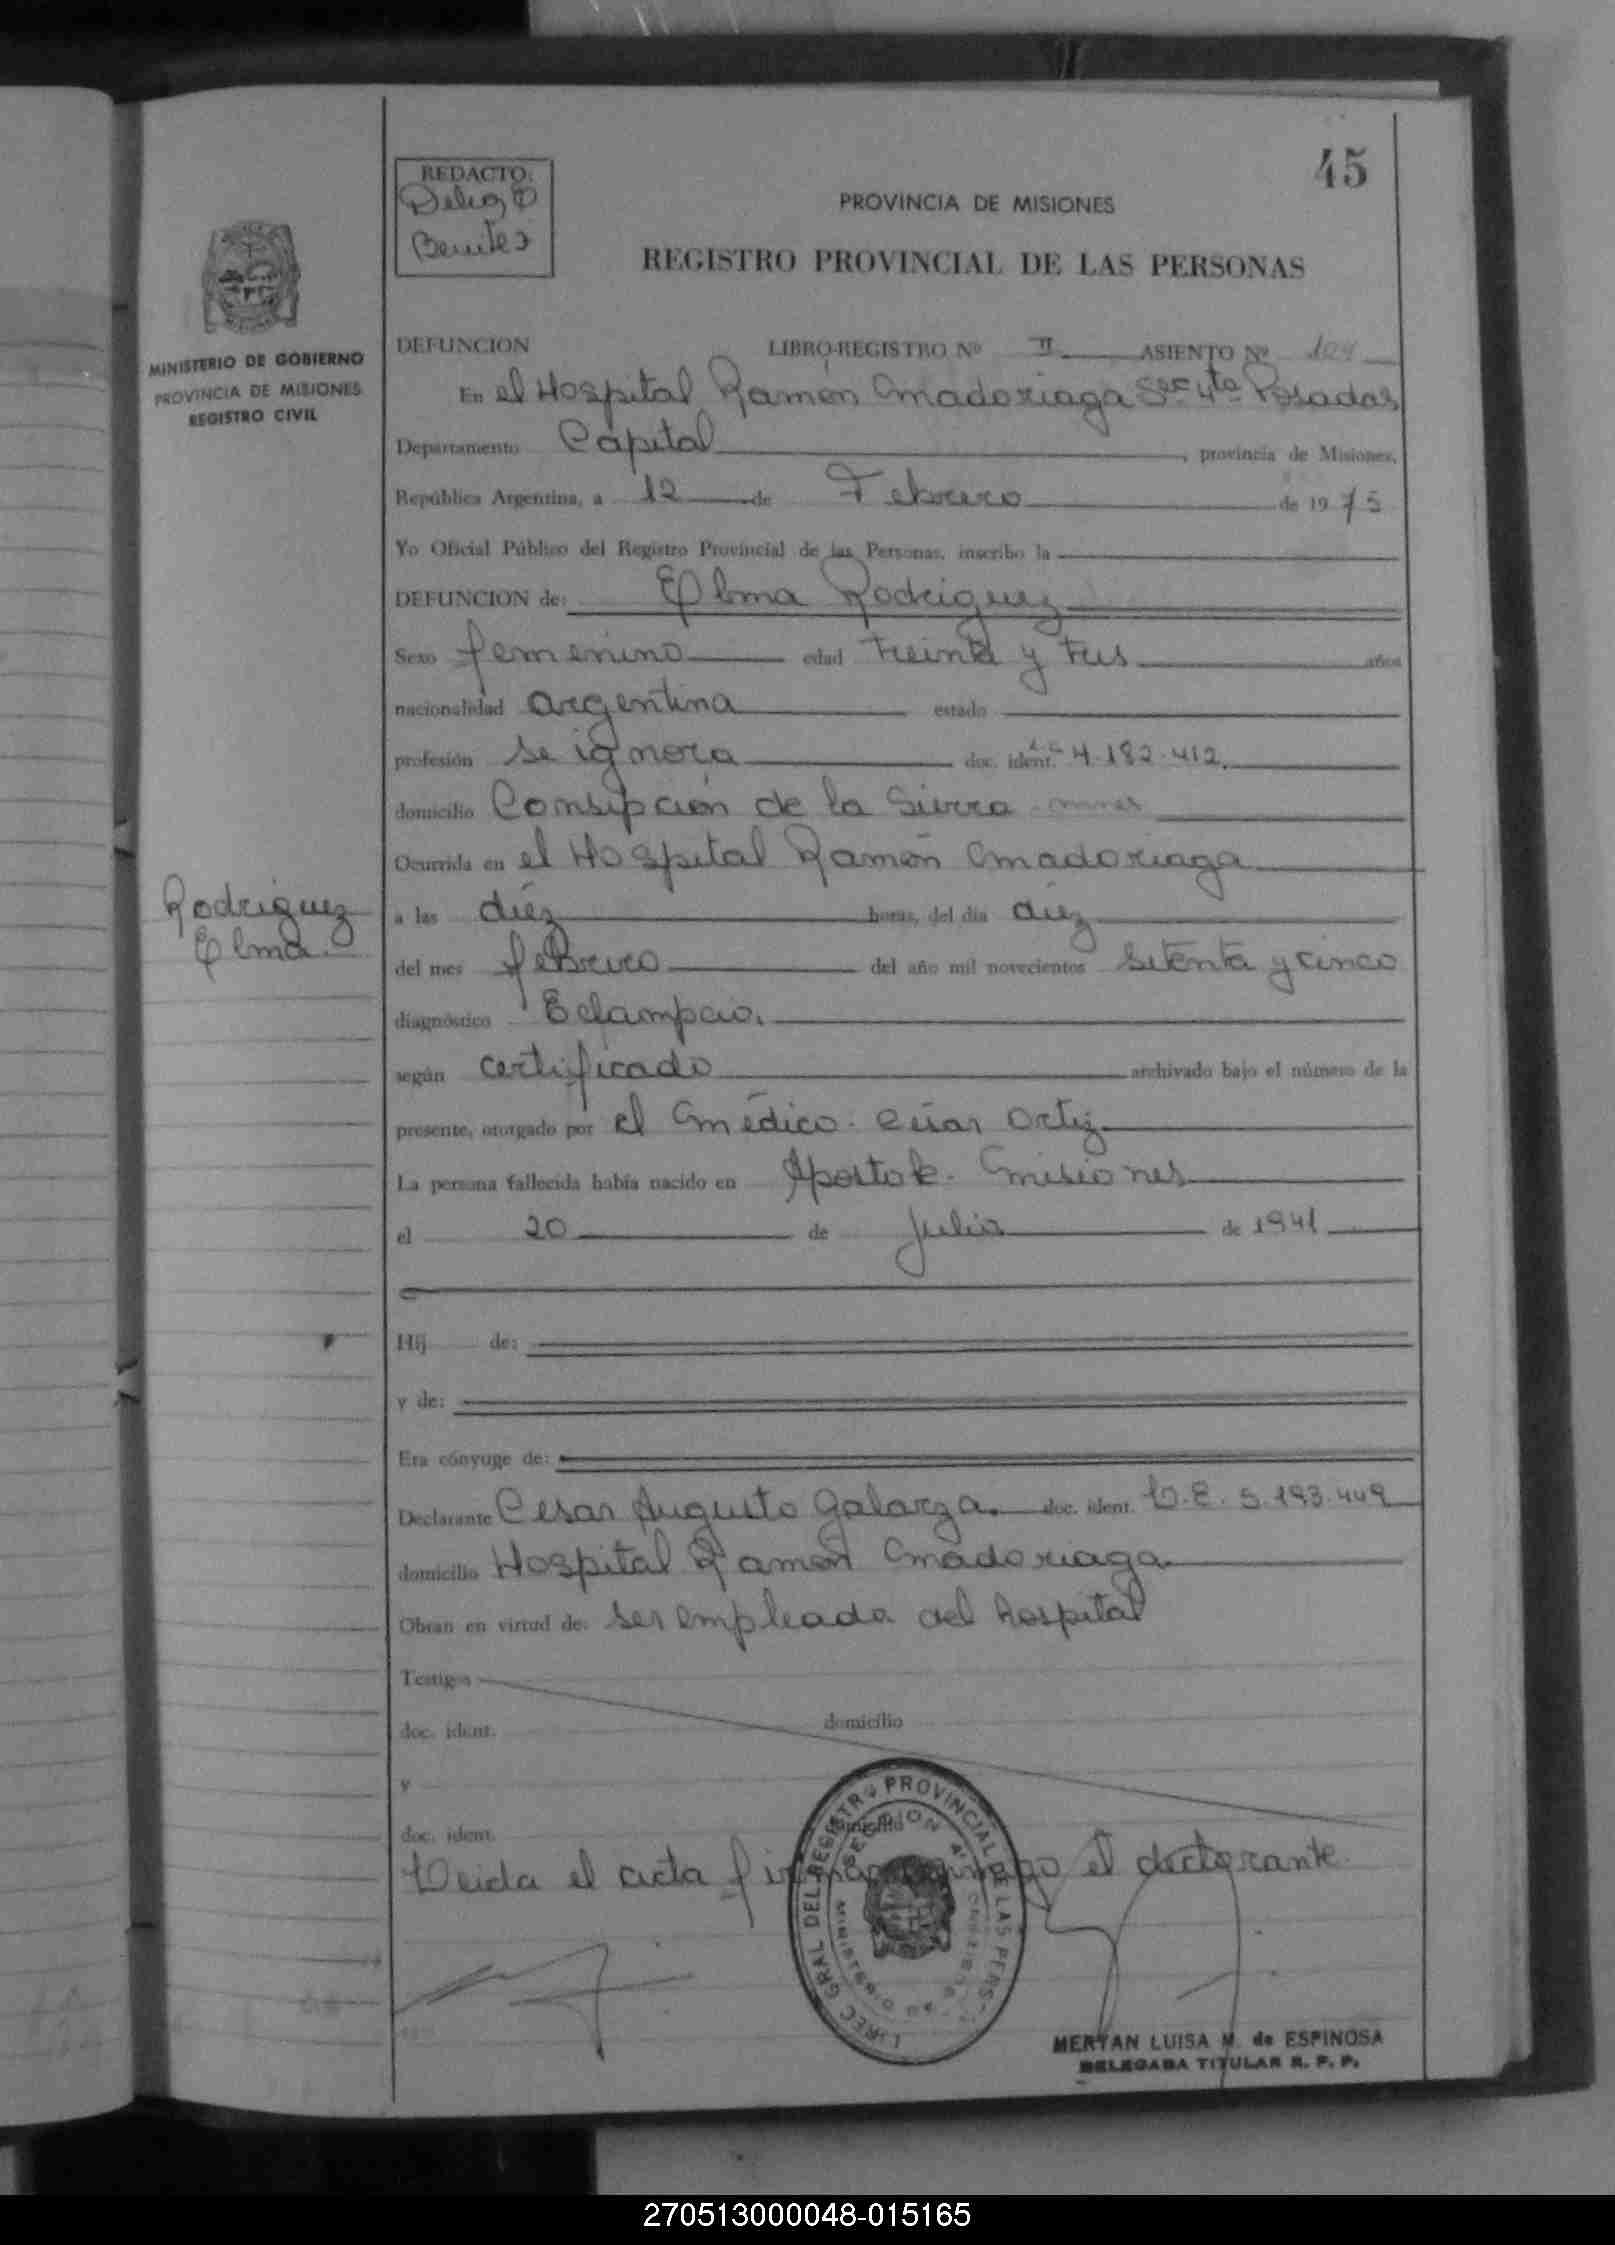 45
REDACTO:
Delia E
Benitez
PROVINCIA DE MISIONES
REGISTRO PROVINCIAL DE LAS PERSONAS
MINISTERIO DE GOBIERNO
PROVINCIA DE MISIONES
REGISTRO CIVIL
DEFUNCION LIBRO-REGISTRO Nº II ASIENTO Nº 104
En el Hospital Ramón Madoriaga Sec 4ta Posadas
Departamento Capital, provincia de Misiones,
República Argentina, a 12 de Febrero de 1975
Yo Oficial Público del Registro Provincial de las Personas, inscribo la
DEFUNCION de: Elma Rodriguez
Sexo femenino edad treinta y tres años
nacionalidad argentina estado
profesión se ignora doc. ident. L.C 4.182.412.
domicilio Consepción de la Sierra
Ocurrida en el Hospital Ramón Madoriaga
Rodriguez
Elma.
a las diéz horas, del dia diez
del mes febrero del año mil novecientos setenta y cinco
diagnóstico Eclampcia.
según certificado archivado bajo el número de la
presente, otorgado por el médico. César Ortiz
La persona fallecida había nacido en Apostole. Misiones
el 20 de julio de 1941
Hij de:
y de:
Era cónyuge de:
Declarante Cesar Augusto Galarza. doc. ident. L.E. 5.193.449
domicilio Hospital Ramón Madoriaga.
Obran en virtud de: ser empleado del hospital
Testigos
doc. ident. domicilio
y
doc. ident. domicilio
Leida el acta firma el declarante.
DIREC GRAL DEL REGISTRO PROVINCIAL DE LAS PERS.
SECCION 4ª
MINISTERIO DE GOBIERNO
MERYAN LUISA M. de ESPINOSA
DELEGADA TITULAR R. P. P.
270513000048-015165